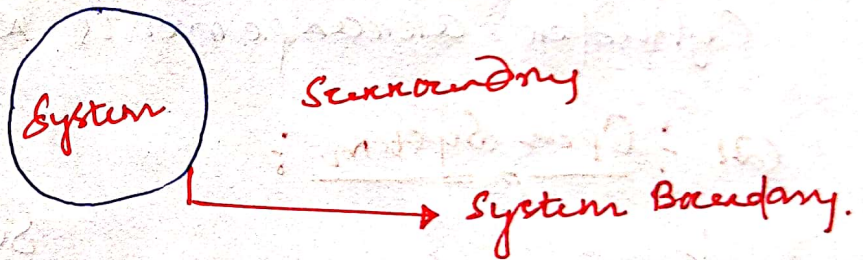 System
Surrounding
System Boundary.